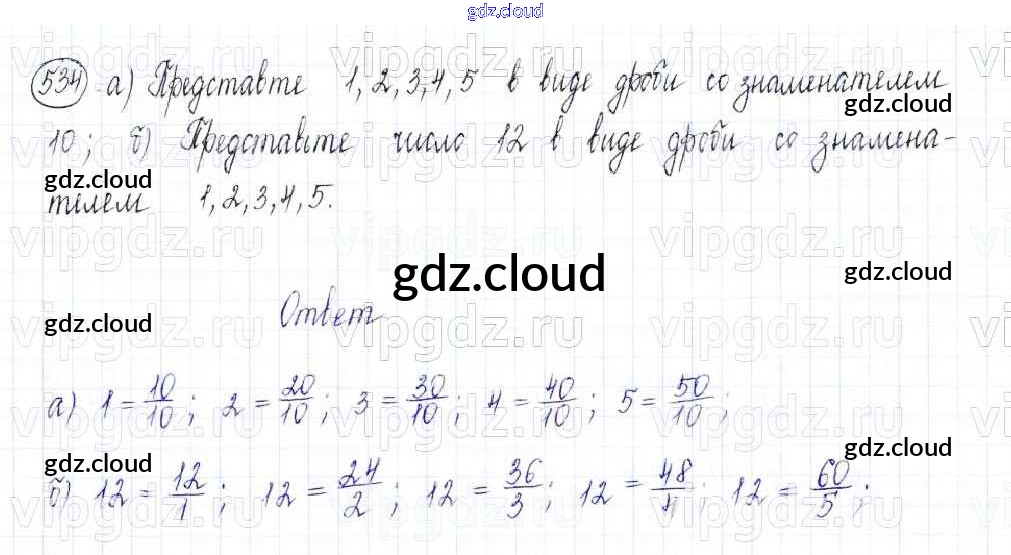 gdz.cloud
534 а) Представьте 1, 2, 3, 4, 5 в виде дроби со знаменателем
gdz.cloud
10; б) Представьте число 12 в виде дроби со знамена-
gdz.cloud
телем 1, 2, 3, 4, 5.
gdz.cloud
gdz.cloud
Ответ
gdz.cloud
а) 1 = 10/10; 2 = 20/10; 3 = 30/10; 4 = 40/10; 5 = 50/10;
gdz.cloud
gdz.cloud
б) 12 = 12/1; 12 = 24/2; 12 = 36/3; 12 = 48/4; 12 = 60/5;
vipgdz.ru